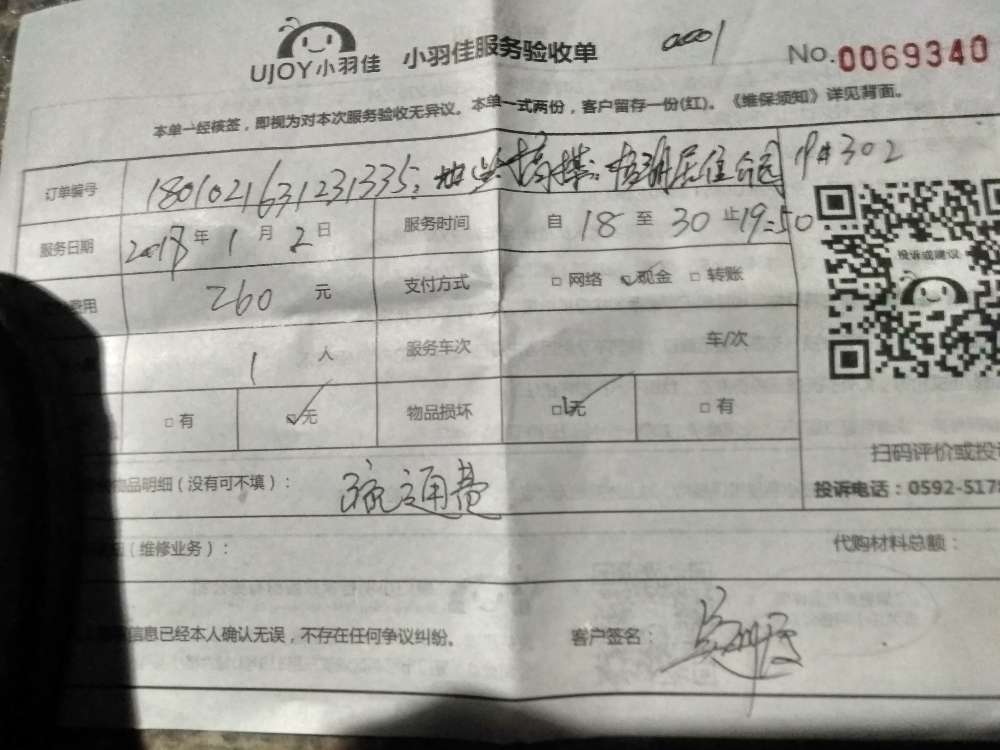 UJOY小羽佳 小羽佳服务验收单 0001 No.0069340
本单一经核签，即视为对本次服务验收无异议。本单一式两份，客户留存一份(红)。《维保须知》详见背面。
订单编号 180102163123 1335; 地址 居住公园 19#302
服务日期 2018年1月2日 服务时间 自18至30止19:50
费用 260元 支付方式 □网络 ☑现金 □转账
投诉或建议
1人 服务车次 车/次
□有 ☑无 物品损坏 ☑无 □有
扫码评价或投
物品明细（没有可不填）： 疏通费
投诉电话：0592-5178
（维修业务）： 代购材料总额：
信息已经本人确认无误，不存在任何争议纠纷。 客户签名：